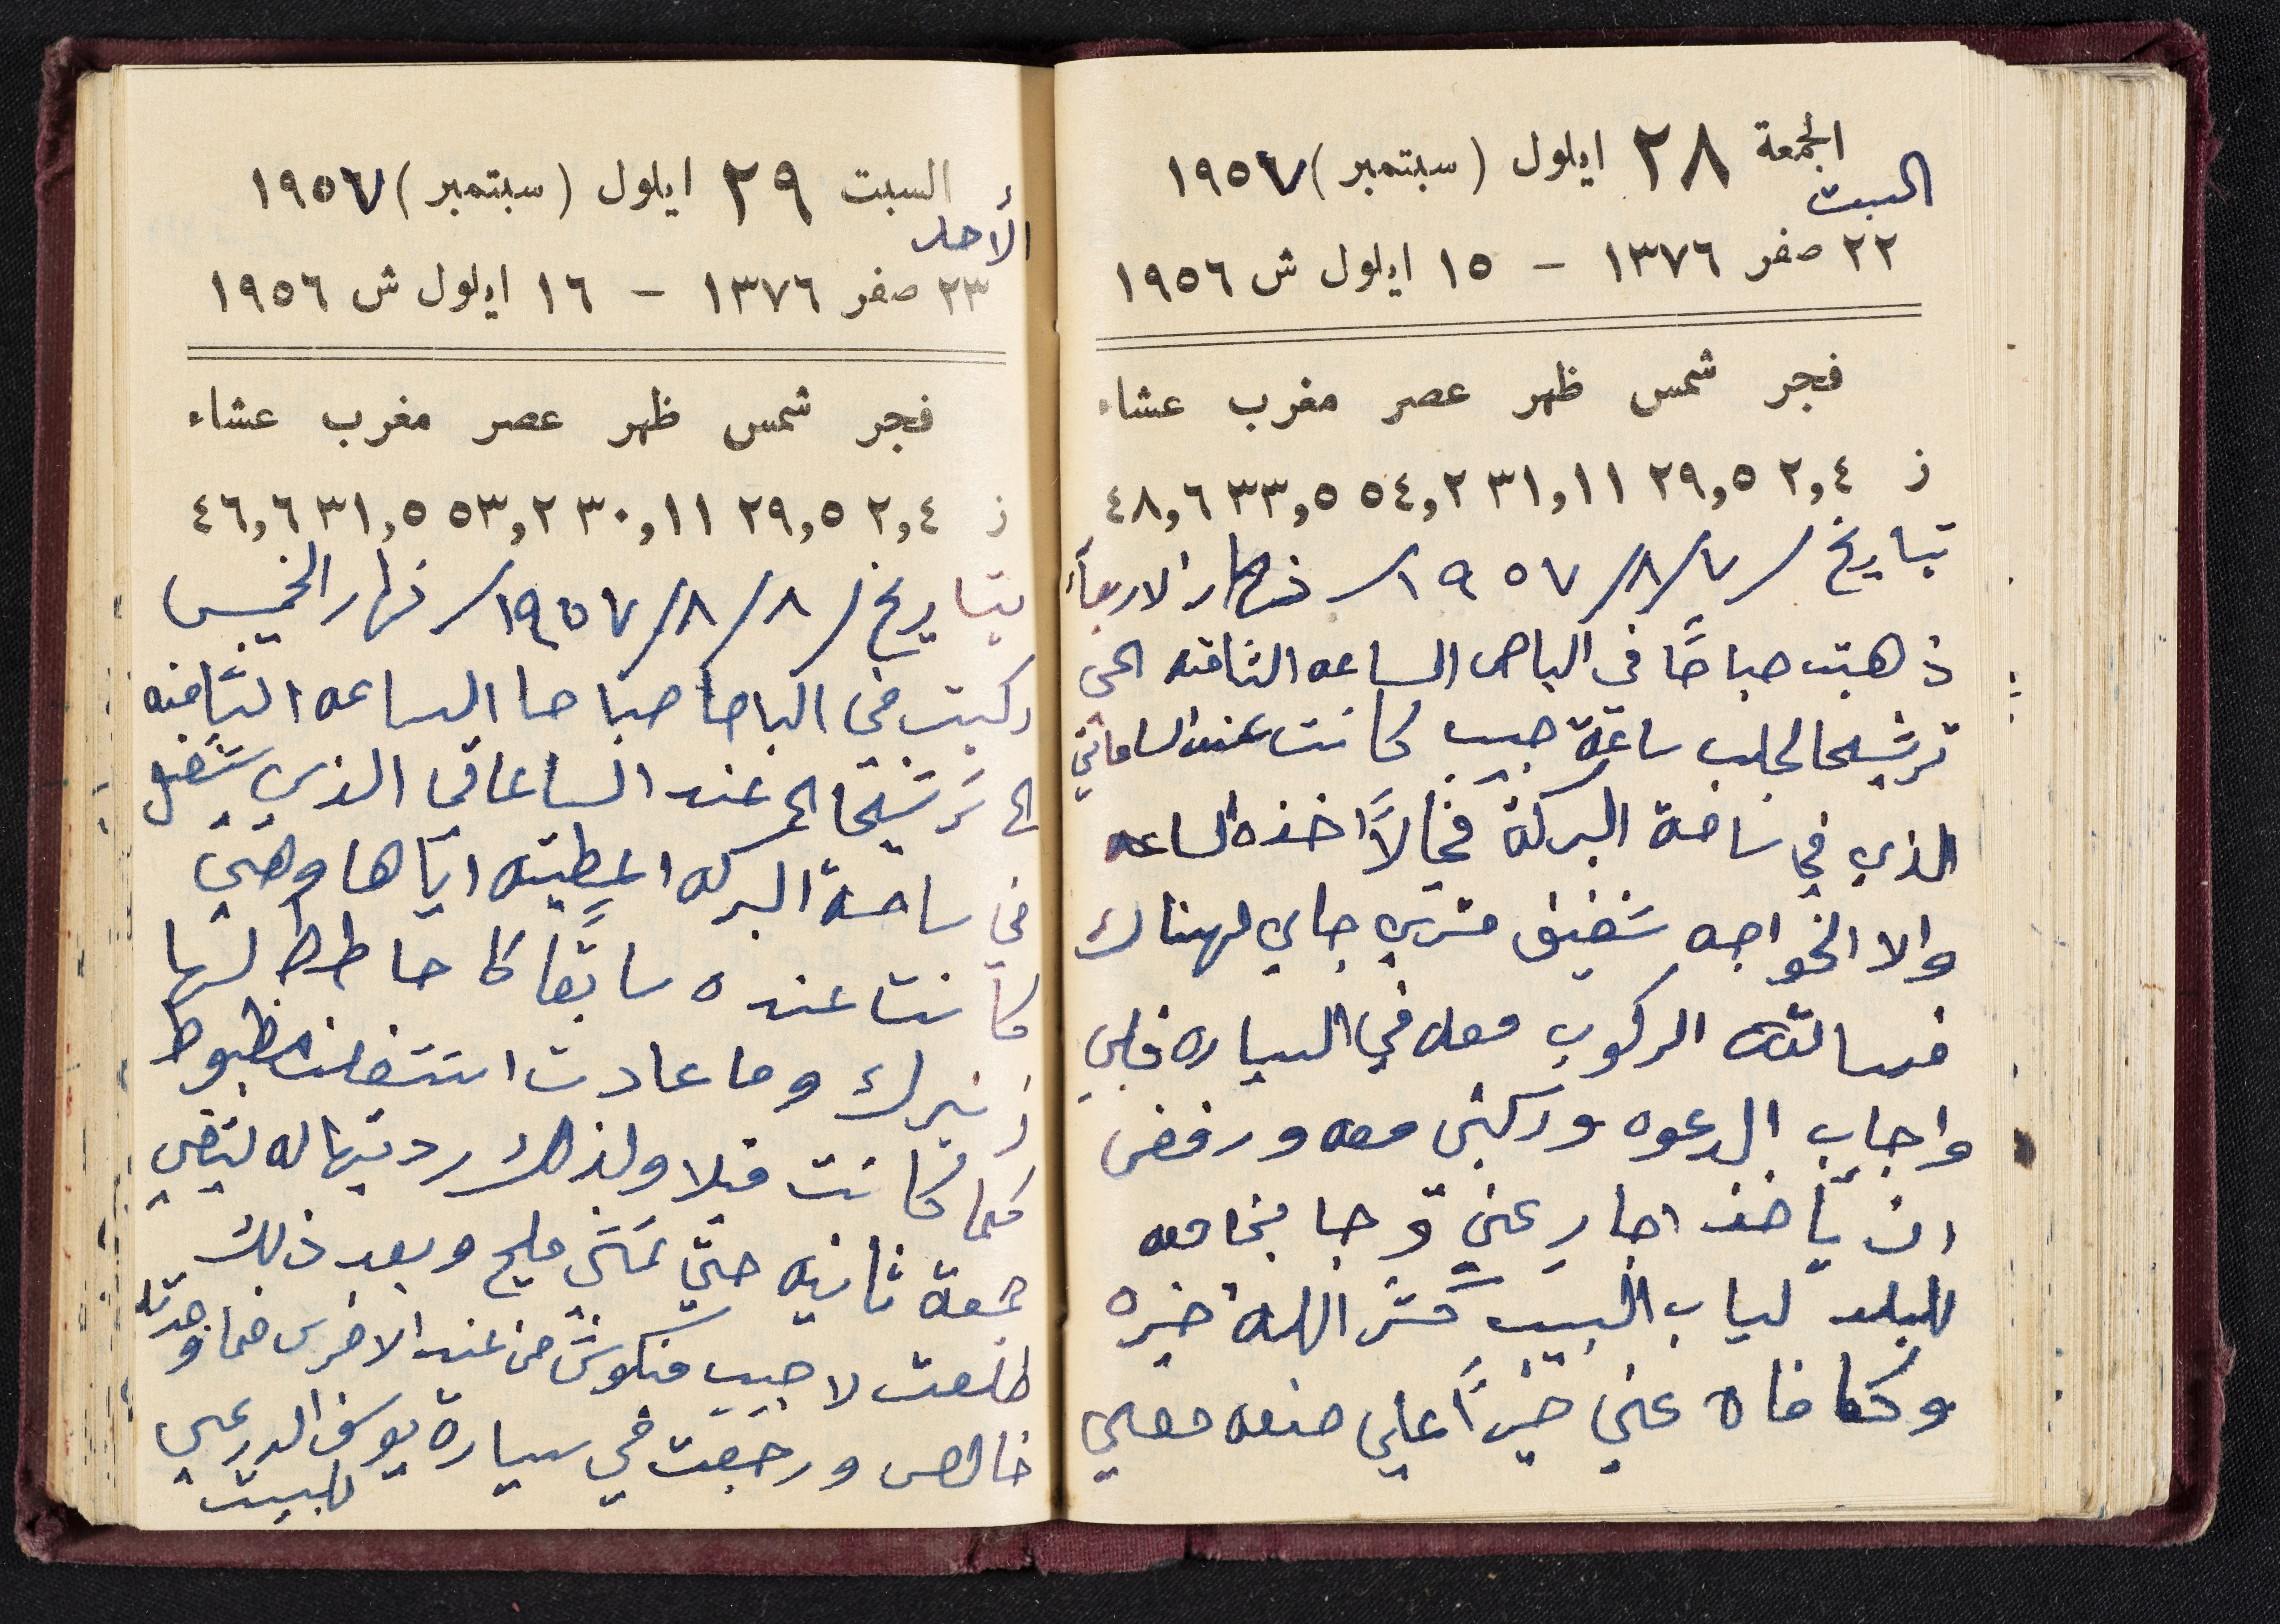 الجمعة ٢٨ ايلول (سبتمبر) ١٩٥٧
السبت
٢٢ صفر ١٣٧٦ - ١٥ ايلول ش ١٩٥٦
فجر شمس ظهر عصر مغرب عشاء
ز ٢,٤ ٢٩,٥ ٣١,١١ ٥٤,٢ ٣٣,٥ ٤٨,٦
بتاريخ /٧/٨/١٩٥٧/ نهار الاربعاء
ذهبت صباحًا في الباص الساعه الثامنه الى
ترشيحا لجلب ساعة جيب كانت عند الساعاتي
الذي في ساحة البركة فحالاً اخذة الساعه
والا الخواجه شفيق متري جاي لهناك
فسالته الركوب معه في السياره فلبى
واجاب الدعوه وركبني معه ورفض
ان يأخذ اجار عني وجابنا معه
للبلد لباب البيت كتر الله خيره
وكافاه عني خيرًا علي صنعه معي
السبت ٢٩ ايلول (سبتمبر) ١٩٥٧
الأحد
٢٣ صفر ١٣٧٦ - ١٦ ايلول ش ١٩٥٦
فجر شمس ظهر عصر مغرب عشاء
ز ٢,٤ ٢٩,٥ ٣٠,١١ ٥٣,٢ ٣١,٥ ٤٦,٦
بتاريخ /٨/٨/١٩٥٧/ نهار الخميس
ركبت في الباص صباحا الساعه الثامنه
الى ترشيحا الى عند الساعاتي الذي يشتغل
في ساحة البركه اعطيته اياها وهي
كانت عنده سابقًا كا حاطط لها
زنبرك وما عادت اشتغلت مظبوط
كما كانت قبلا ولذلك رديتها له لتبقى
جمعة ثانيه حتى تمشي مليح وبعد ذلك
طلعت لاجيب منكوش من عند الاخرس فما وجدته
خالص ورجعت في سيارة يوسف الدرعي
للبيت